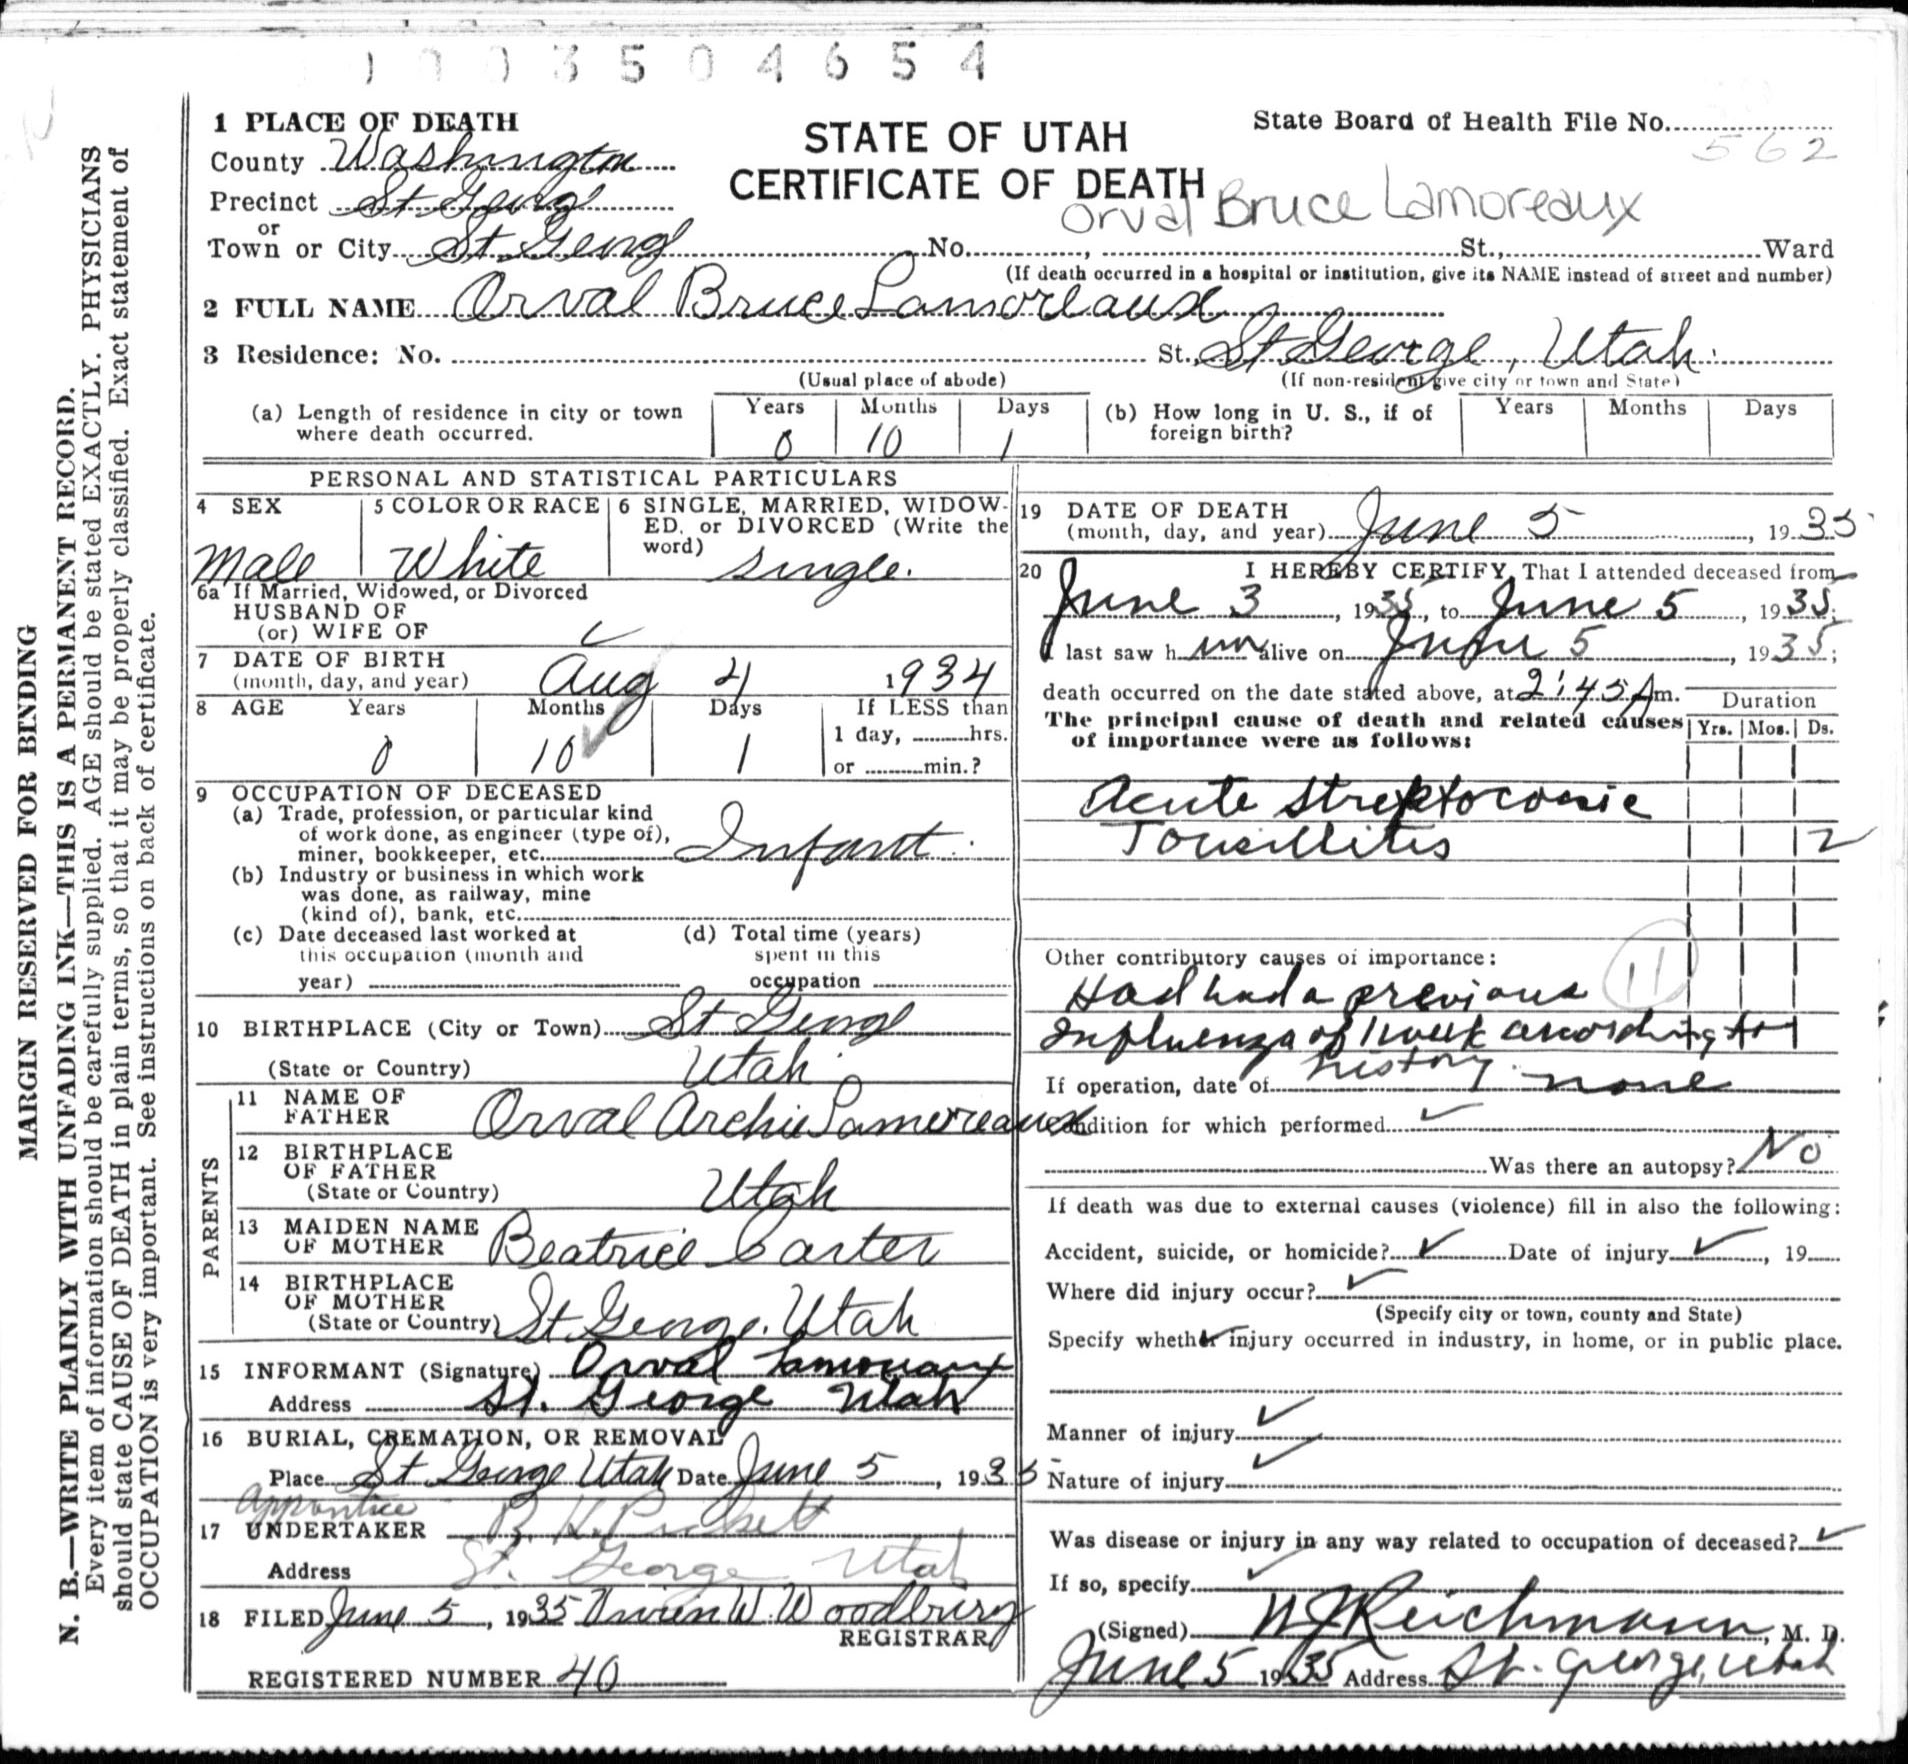 3 5 0 4 6 5 4
MARGIN RESERVED FOR BINDING
N. B.—WRITE PLAINLY WITH UNFADING INK—THIS IS A PERMANENT RECORD.
Every item of information should be carefully supplied. AGE should be stated EXACTLY. PHYSICIANS
should state CAUSE OF DEATH in plain terms, so that it may be properly classified. Exact statement of
OCCUPATION is very important. See instructions on back of certificate.
STATE OF UTAH
CERTIFICATE OF DEATH
State Board of Health File No.
562
Orval Bruce Lamoreaux
1 PLACE OF DEATH
County Washington
Precinct St. George
or
Town or City St. George No. , St., Ward
(If death occurred in a hospital or institution, give its NAME instead of street and number)
2 FULL NAME Orval Bruce Lamoreaux
3 Residence: No. St. St George, Utah
(Usual place of abode) (If non-resident give city or town and State)
(a) Length of residence in city or town where death occurred. Years 0 Months 10 Days 1
(b) How long in U. S., if of foreign birth? Years Months Days
PERSONAL AND STATISTICAL PARTICULARS
4 SEX Male
5 COLOR OR RACE White
6 SINGLE, MARRIED, WIDOWED, or DIVORCED (Write the word) single.
6a If Married, Widowed, or Divorced
HUSBAND OF
(or) WIFE OF
7 DATE OF BIRTH
(month, day, and year) Aug 4 1934
8 AGE Years 0 Months 10 Days 1
If LESS than
1 day, hrs.
or min.?
9 OCCUPATION OF DECEASED
(a) Trade, profession, or particular kind
of work done, as engineer (type of),
miner, bookkeeper, etc. Infant
(b) Industry or business in which work
was done, as railway, mine
(kind of), bank, etc.
(c) Date deceased last worked at
this occupation (month and
year)
(d) Total time (years)
spent in this
occupation
10 BIRTHPLACE (City or Town) St George
(State or Country) Utah
PARENTS
11 NAME OF
FATHER Orval Archie Lamoreaux
12 BIRTHPLACE
OF FATHER
(State or Country) Utah
13 MAIDEN NAME
OF MOTHER Beatrice Carter
14 BIRTHPLACE
OF MOTHER
(State or Country) St. George, Utah
15 INFORMANT (Signature) Orval Lamoreaux
Address St. George Utah
16 BURIAL, CREMATION, OR REMOVAL
Place St George Utah Date June 5, 1935
apprentice
17 UNDERTAKER B. H. Pickett
Address St. George Utah
18 FILED June 5, 1935 Vivien W. Woodbury
REGISTRAR
REGISTERED NUMBER 40
19 DATE OF DEATH
(month, day, and year) June 5, 1935
20 I HEREBY CERTIFY, That I attended deceased from
June 3, 1935, to June 5, 1935;
I last saw him alive on June 5, 1935;
death occurred on the date stated above, at 2:45 A m.
The principal cause of death and related causes
of importance were as follows:
Duration
Yrs. Mos. Ds.
Acute Streptococcic
Tonsillitis 2
Other contributory causes of importance:
11
Had had a previous
Influenza of 1 week according to
history
If operation, date of none
Condition for which performed
Was there an autopsy? No
If death was due to external causes (violence) fill in also the following:
Accident, suicide, or homicide? Date of injury , 19
Where did injury occur?
(Specify city or town, county and State)
Specify whether injury occurred in industry, in home, or in public place.
Manner of injury
Nature of injury
Was disease or injury in any way related to occupation of deceased?
If so, specify
(Signed) W J Reichmann, M. D.
June 5 1935 Address St. George, Utah